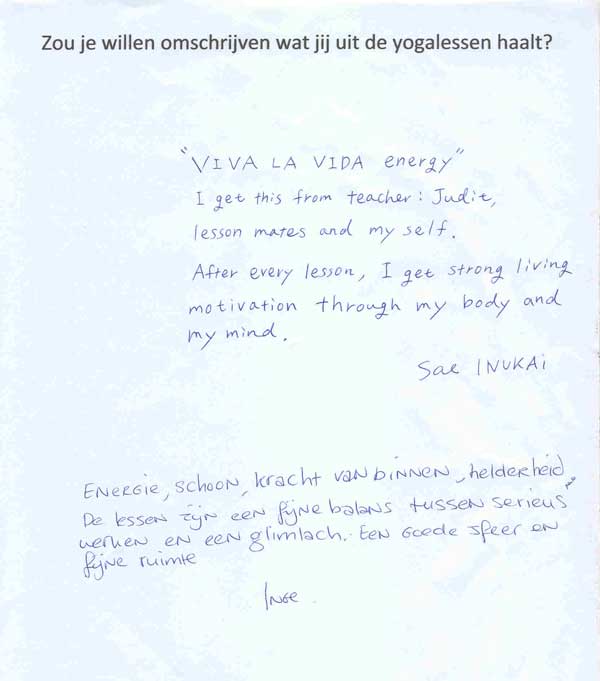 Zou je willen omschrijven wat jij uit de yogalessen haalt?
"VIVA LA VIDA energy"
I get this from teacher: Judit,
lesson mates and my self.
After every lesson, I get strong living
motivation through my body and
my mind.
Sae INUKAi
ENERGIE, SCHOON, kracht van binnen, helderheid
De lessen zijn een fijne balans tussen serieus
werken en een glimlach. Een goede sfeer en
fijne ruimte
INGE